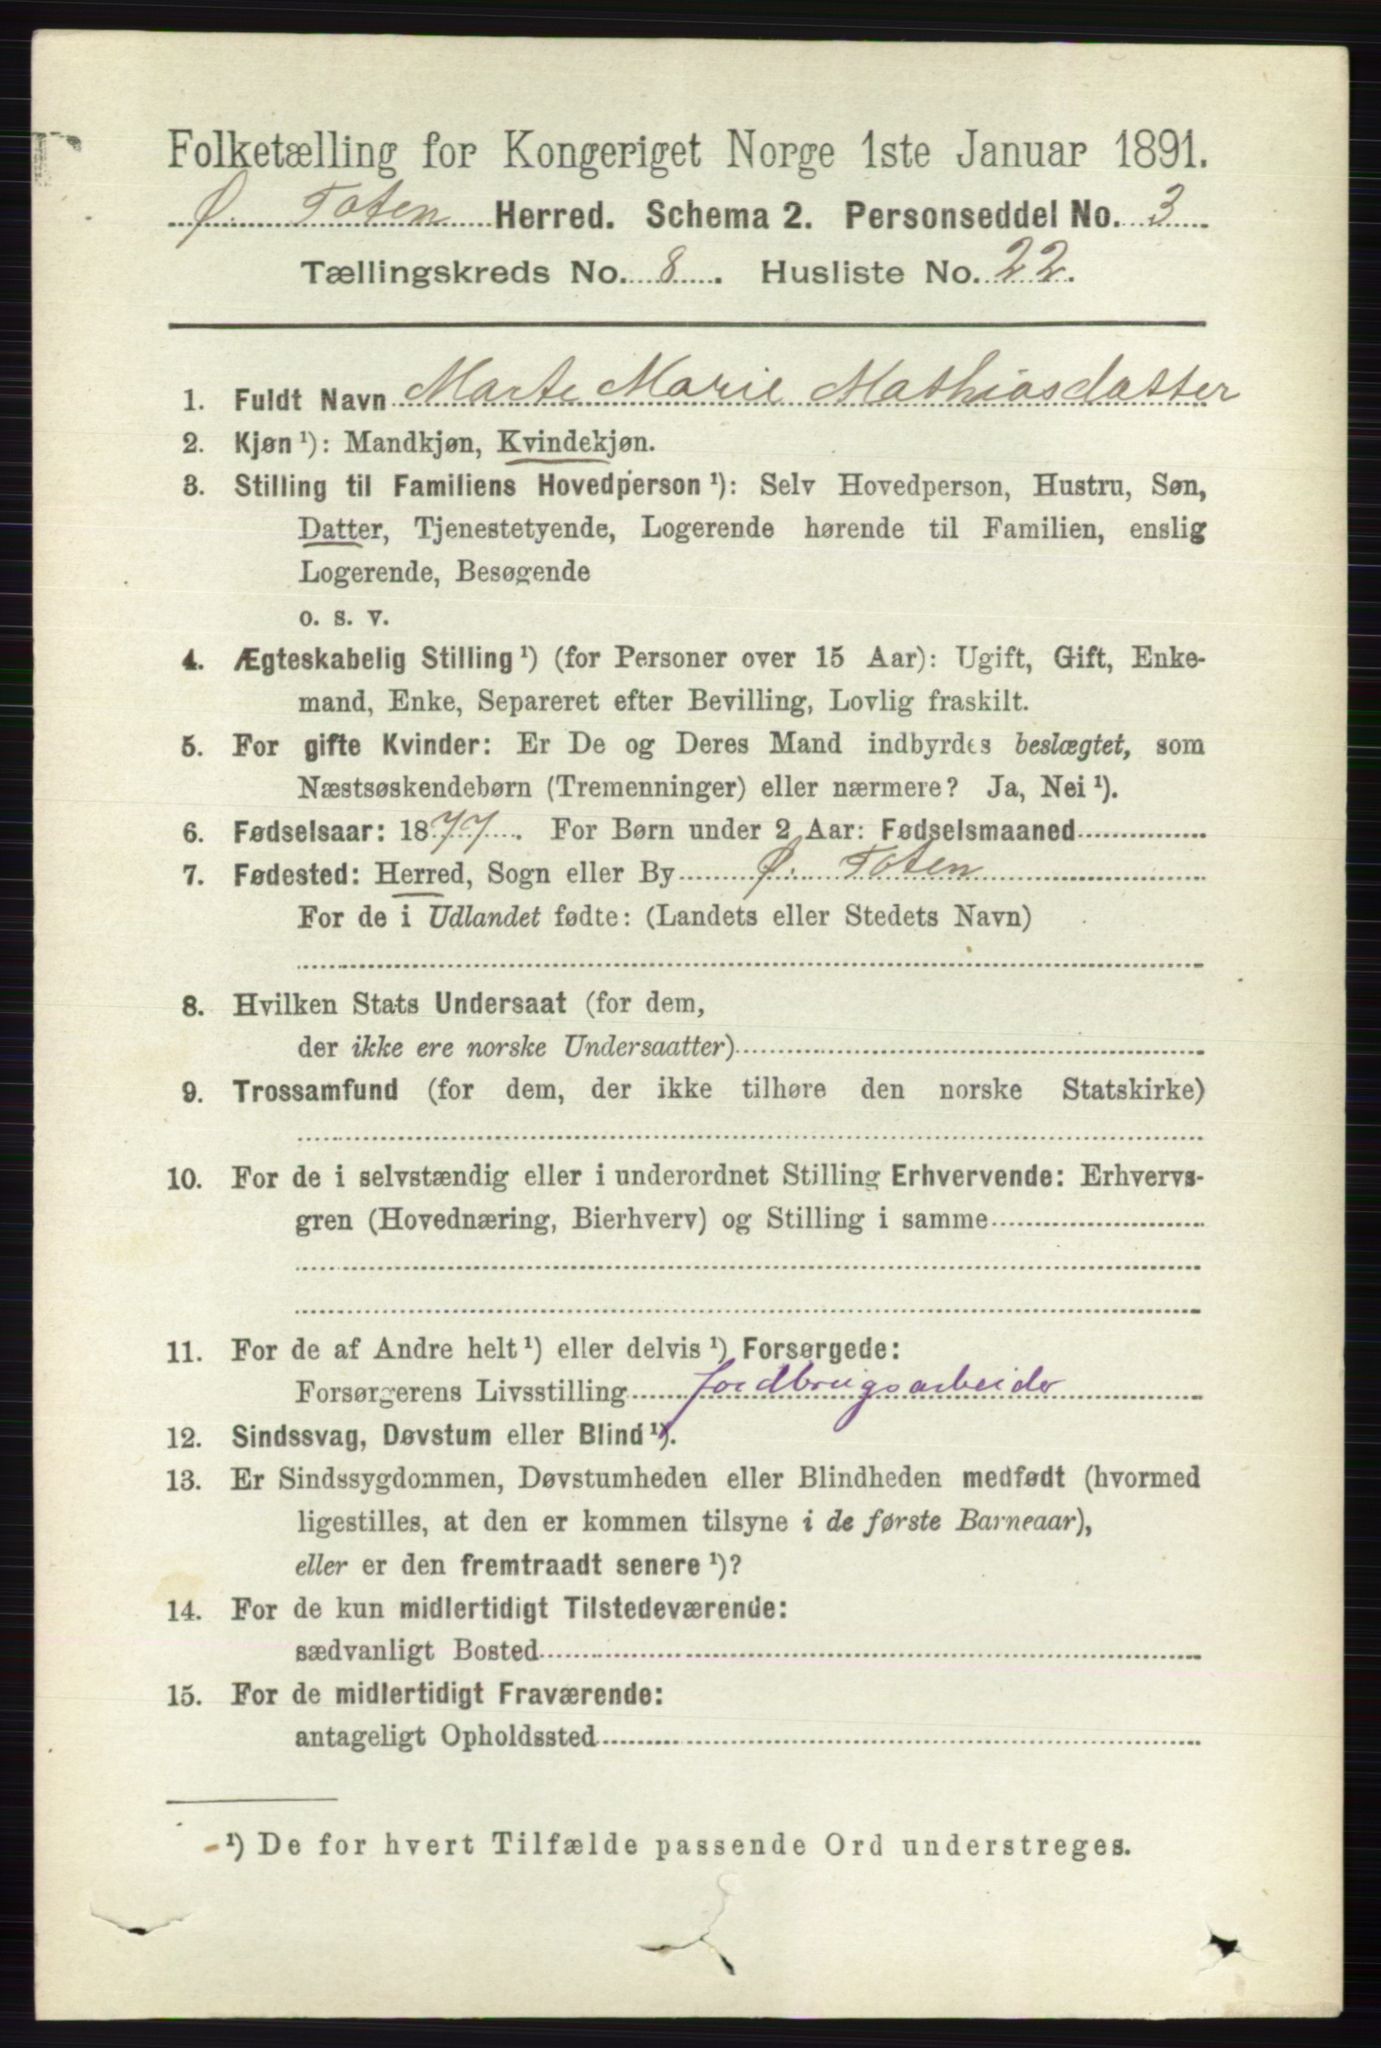 Folketælling for Kongeriget Norge 1ste Januar 1891.
Ø. Toten Herred. Schema 2. Personseddel No. 3
Tællingskreds No. 8. Husliste No. 22.
1. Fuldt Navn Marte Marie Mathiasdatter
2. Kjøn¹): Mandkjøn, Kvindekjøn.
3. Stilling til Familiens Hovedperson¹): Selv Hovedperson, Hustru, Søn,
Datter, Tjenestetyende, Logerende hørende til Familien, enslig
Logerende, Besøgende
o. s. v.
4. Ægteskabelig Stilling¹) (for Personer over 15 Aar): Ugift, Gift, Enke-
mand, Enke, Separeret efter Bevilling, Lovlig fraskilt.
5. For gifte Kvinder: Er De og Deres Mand indbyrdes beslægtet, som
Næstsøskendebørn (Tremenninger) eller nærmere? Ja, Nei¹).
6. Fødselsaar: 1877. For Børn under 2 Aar: Fødselsmaaned
7. Fødested: Herred, Sogn eller By Ø. Toten
For de i Udlandet fødte: (Landets eller Stedets Navn)
8. Hvilken Stats Undersaat (for dem,
der ikke ere norske Undersaatter)
9. Trossamfund (for dem, der ikke tilhøre den norske Statskirke)
10. For de i selvstændig eller i underordnet Stilling Erhvervende: Erhvervs-
gren (Hovednæring, Bierhverv) og Stilling i samme
11. For de af Andre helt¹) eller delvis¹) Forsørgede:
Forsørgerens Livsstilling Jordbrugsarbeider
12. Sindssvag, Døvstum eller Blind¹).
13. Er Sindssygdommen, Døvstumheden eller Blindheden medfødt (hvormed
ligestilles, at den er kommen tilsyne i de første Barneaar),
eller er den fremtraadt senere¹)?
14. For de kun midlertidigt Tilstedeværende:
sædvanligt Bosted
15. For de midlertidigt Fraværende:
antageligt Opholdssted
¹) De for hvert Tilfælde passende Ord understreges.